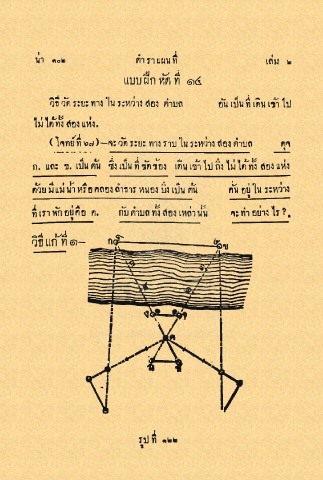 น่า ๓๐๒ ตำราแผนที่ เล่ม ๒
แบบฝึกหัดที่ ๑๔
วิธีวัดระยะทางในระหว่างสองตำบล อันเป็นที่เดินเข้าไป
ไม่ได้ทั้งสองแห่ง.
(โจทย์ที่ ๖๗)—จะวัดระยะทางราบในระหว่างสองตำบล ดุจ
ก. และ ข. เป็นต้น ซึ่งเป็นที่ขัดข้อง เดินเข้าไปถึงไม่ได้ทั้งสองแห่ง
ด้วยมีแม่น้ำหรือคลองลำธารหนองบึงเป็นต้น คั่นอยู่ในระหว่าง
ที่เราพักอยู่คือ ค. กับตำบลทั้งสองเหล่านั้น จะทำอย่างไร ?.
วิธีแก้ที่ ๑—
ก ข
รูปที่ ๑๒๒